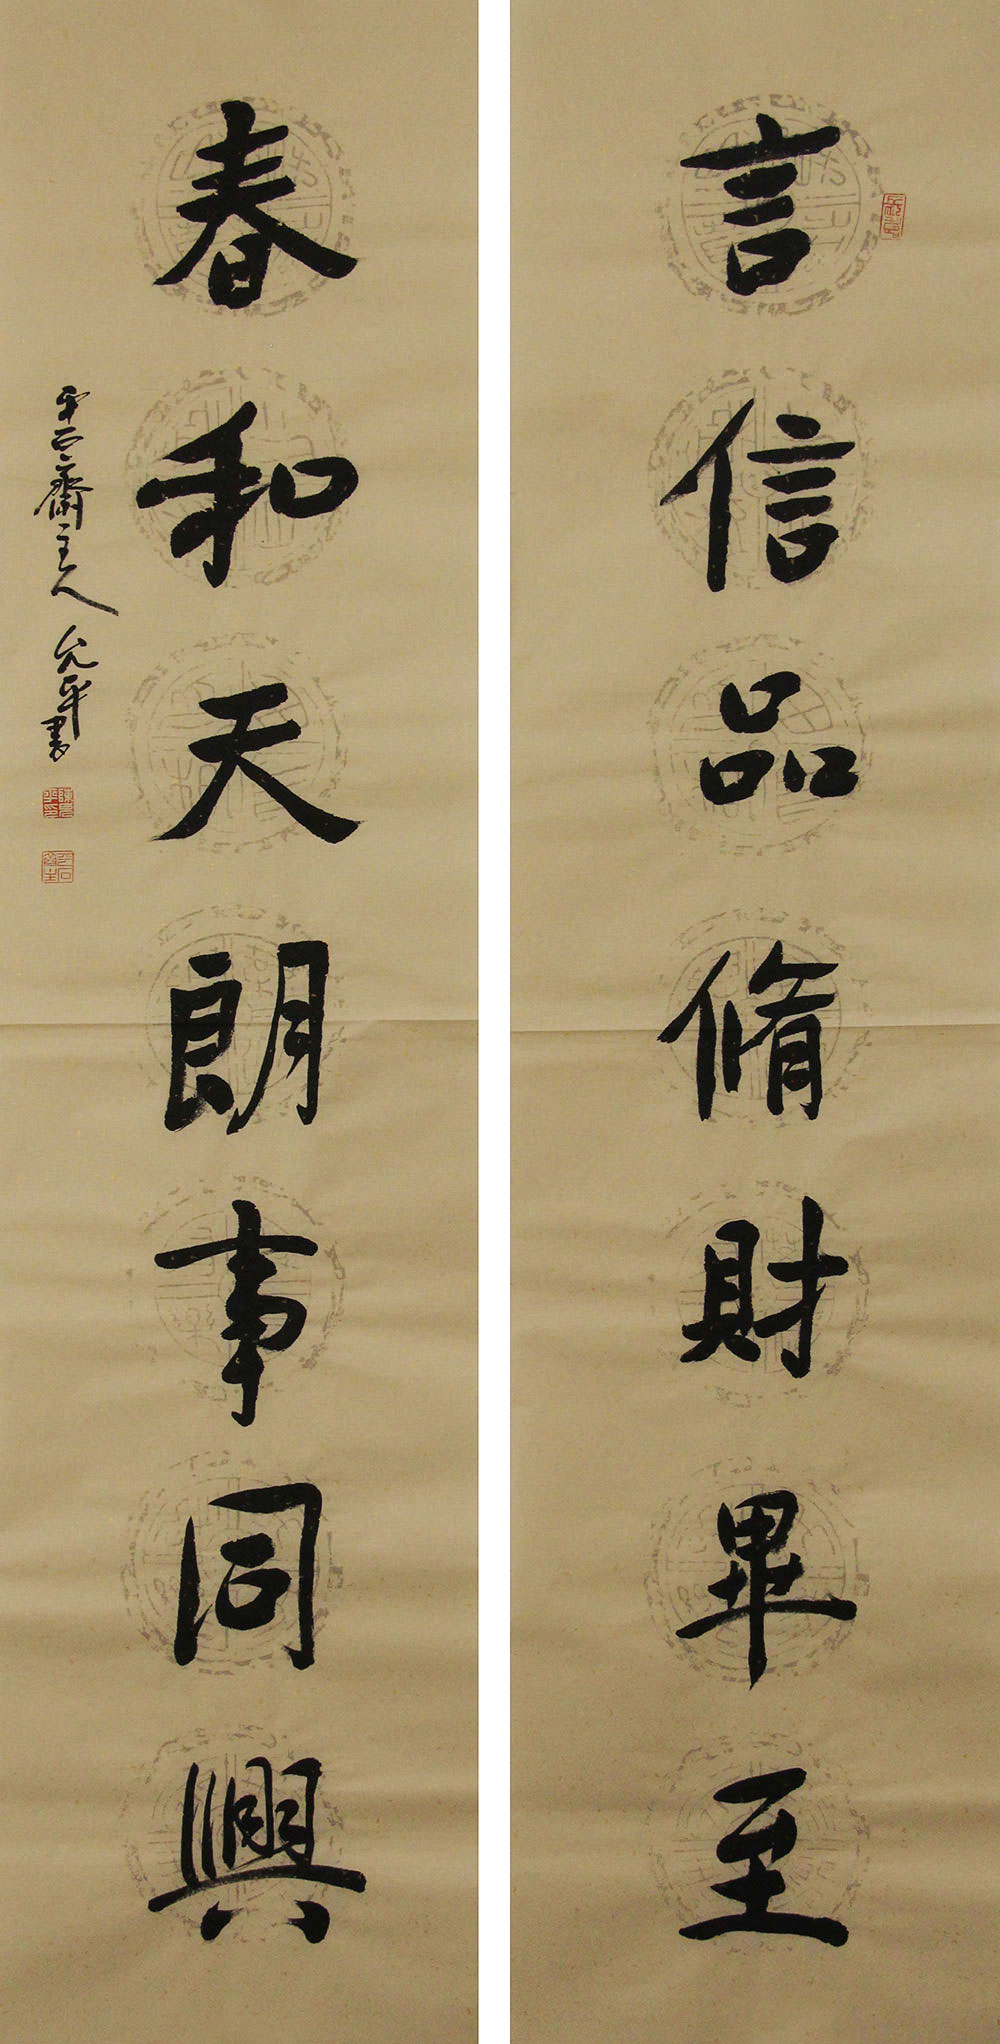 言信品脩財畢至
春和天朗事同興
平石齋主人允平書